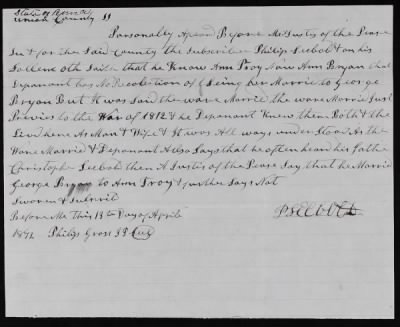 State of
Union County SS
Personally Apeard Before Me Justis of the Pease
In & for the Said County the Subscriber Philip Seebolt on his
Sollem oth Saith that he Know Ann Troy Now Ann Bryan that
Deponant has No Recolection of Being her Marrie to George
Bryan But It was Said the ware Marrie the ware Marrie Just
Previes to the War of 1812 & he Deponant Knew them Both & the
Live here As Man & Wife & It was All ways under Stood As the
Ware Marrie & Deponant Also Says that he often heard his fathe
Christophe Seebolt then A Justis of the Pease Say that he Marrie
George Bryan to Ann Troy & further Says Not
Sworen & Subscrib
Before Me This 13th Day of April
1872 Philip Gross JP